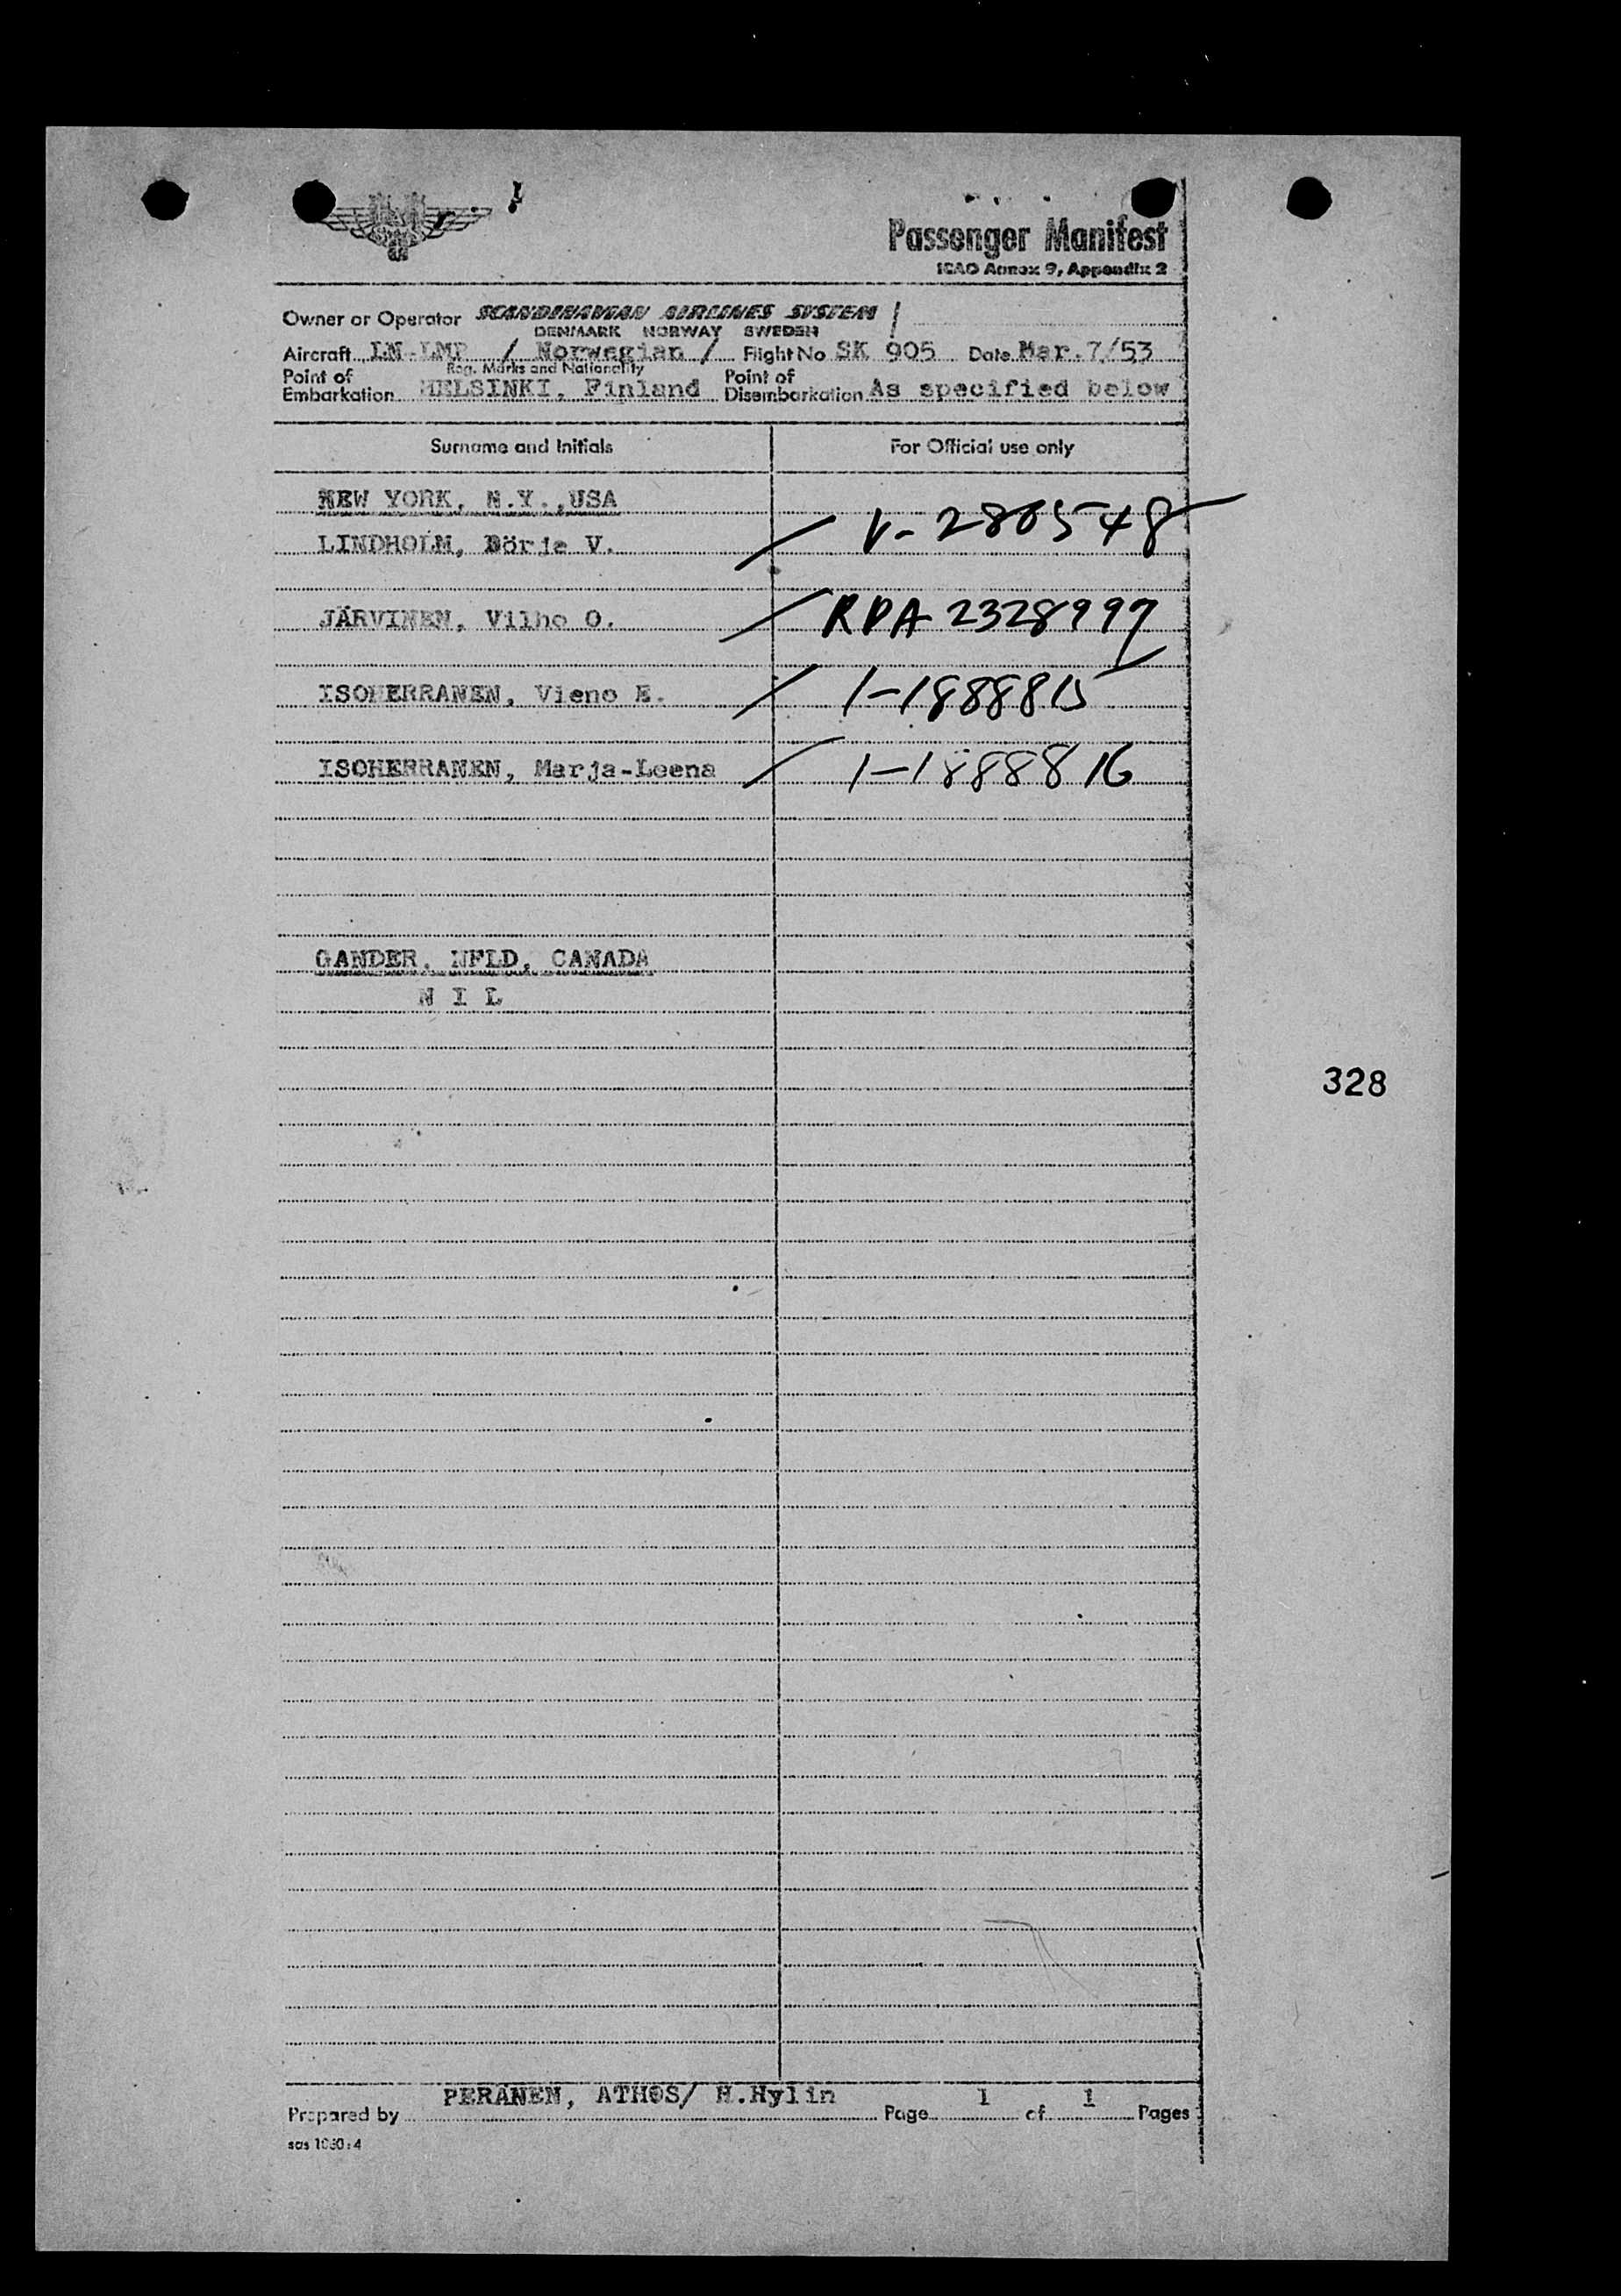 Passenger Manifest
ICAO Annex 9, Appendix 2
Owner or Operator SCANDINAVIAN AIRLINES SYSTEM /
DENMARK NORWAY SWEDEN
Aircraft LN-LMP / Norwegian / Flight No SK 905 Date Mar.7/53
Reg. Marks and Nationality
Point of Embarkation HELSINKI, Finland Point of Disembarkation As specified below
Surname and Initials For Official use only
NEW YORK, N.Y.,USA
LINDHOLM, Börje V. / V-2805548
JÄRVINEN, Vilho O. / RPA 2328997
ISOHERRANEN, Vieno E. / 1-1888815
ISOHERRANEN, Marja-Leena / 1-1888816
GANDER, NFLD, CANADA
N I L
328
PERÄNEN, ATHOS/ H.Hylin
Prepared by Page 1 of 1 Pages
sas 1030:4